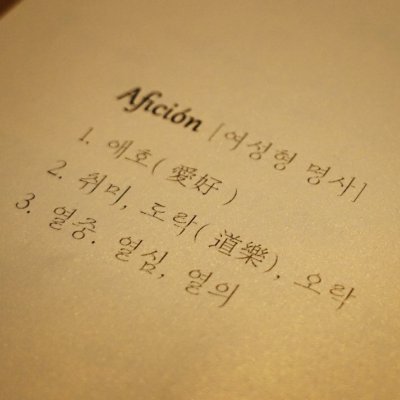 Afición [여성형 명사]
1. 애호( 愛好 )
2. 취미, 도락( 道樂), 오락
3. 열중. 열심, 열의